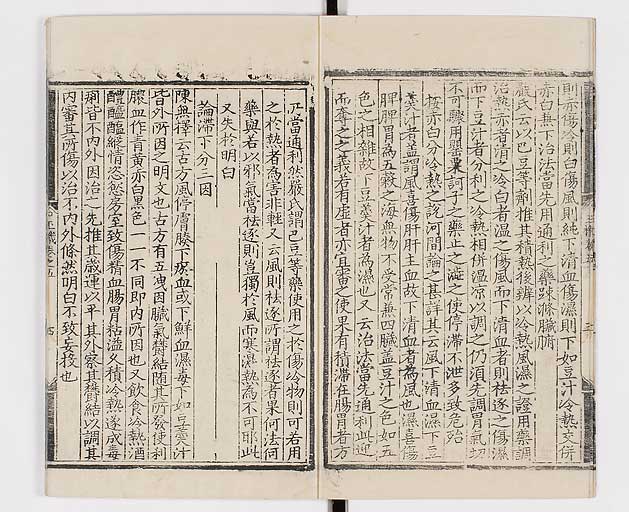 則赤傷冷則白傷風則純下清血傷濕則下如豆汁冷熱交併
赤白兼下治法當先用通利之藥疎滌臟腑
嚴氏云以巴豆等劑推其積熱後辨以冷熱風濕之證用藥調
治熱赤者清之冷白者溫之傷風而下清血者則祛逐之傷濕
而下豆汁者分利之冷熱相併溫凉以調之仍須先調胃氣切
不可驟用罌粟訶子之藥止之澁之使停滯不泄多致危殆
按赤白分冷熱之說河間論之甚詳其云風下清血濕下豆
羹汁者蓋謂風喜傷肝肝主血故下清血者為風也濕喜傷
脾脾胃為五穀之海無物不受常兼四臟蓋豆汁之色如五
色之相雜故下豆羹汁者為濕也又云治法當先通利此迎
而奪之之義若有虛者亦宜審之使果有積滯在腸胃者方
可當通利然嚴氏謂巴豆等藥使用之於傷冷物則可若用
之於熱者為害非輕又云風則祛逐所謂祛逐者果何法何
藥與若以邪氣當祛逐則豈獨於風而寒濕熱為不可耶此
又失於明白
論滯下分三因
陳無擇云古方風停膚腠下瘀血或下鮮血濕毒下如豆羹汁
皆外所因之明文也古方有五洩因臟氣鬱結隨其所發使利
膿血作青黃赤白黑色一一不同即內所因也又飲食冷熱酒
醴醯醢縱情恣慾房室致傷精血腸胃粘溢久積冷熱遂成毒
痢皆不內外因治之先推其歲運以平其外察其鬱結以調其
內審其所傷以治不內外條然明白不致妄投也